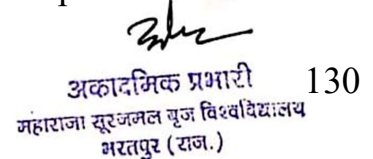 अकादमिक प्रभारी 130
महाराजा सूरजमल बृज विश्वविद्यालय
भरतपुर (राज.)